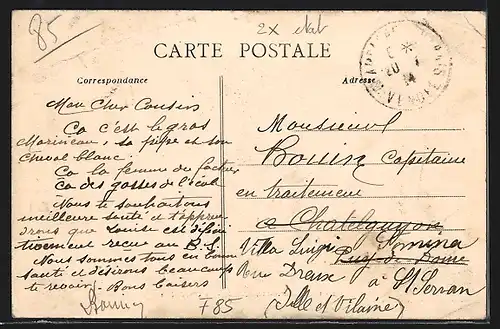 85
2x état
CARTE POSTALE
Correspondance
Adresse
20
14
Mon Cher Cousin
Ça c'est le gros
Morineau, sa pipe et son
cheval blanc.
Ça la femme du facteur
Ça des gosses de l'école
Nous te souhaitons
meilleure santé et t'appren
drons que Louise est défini
tivement recue au B.S.
Nous sommes tous en bonne
santé et désirons beaucoup
te revoir. Bons baisers
Monsieur
Bouin Capitaine
en traitement
a Chatelguyon
Puy-de-Dome
Villa Luigi
Rue Dreux à St Servan
(Ille et Vilaine)
F85